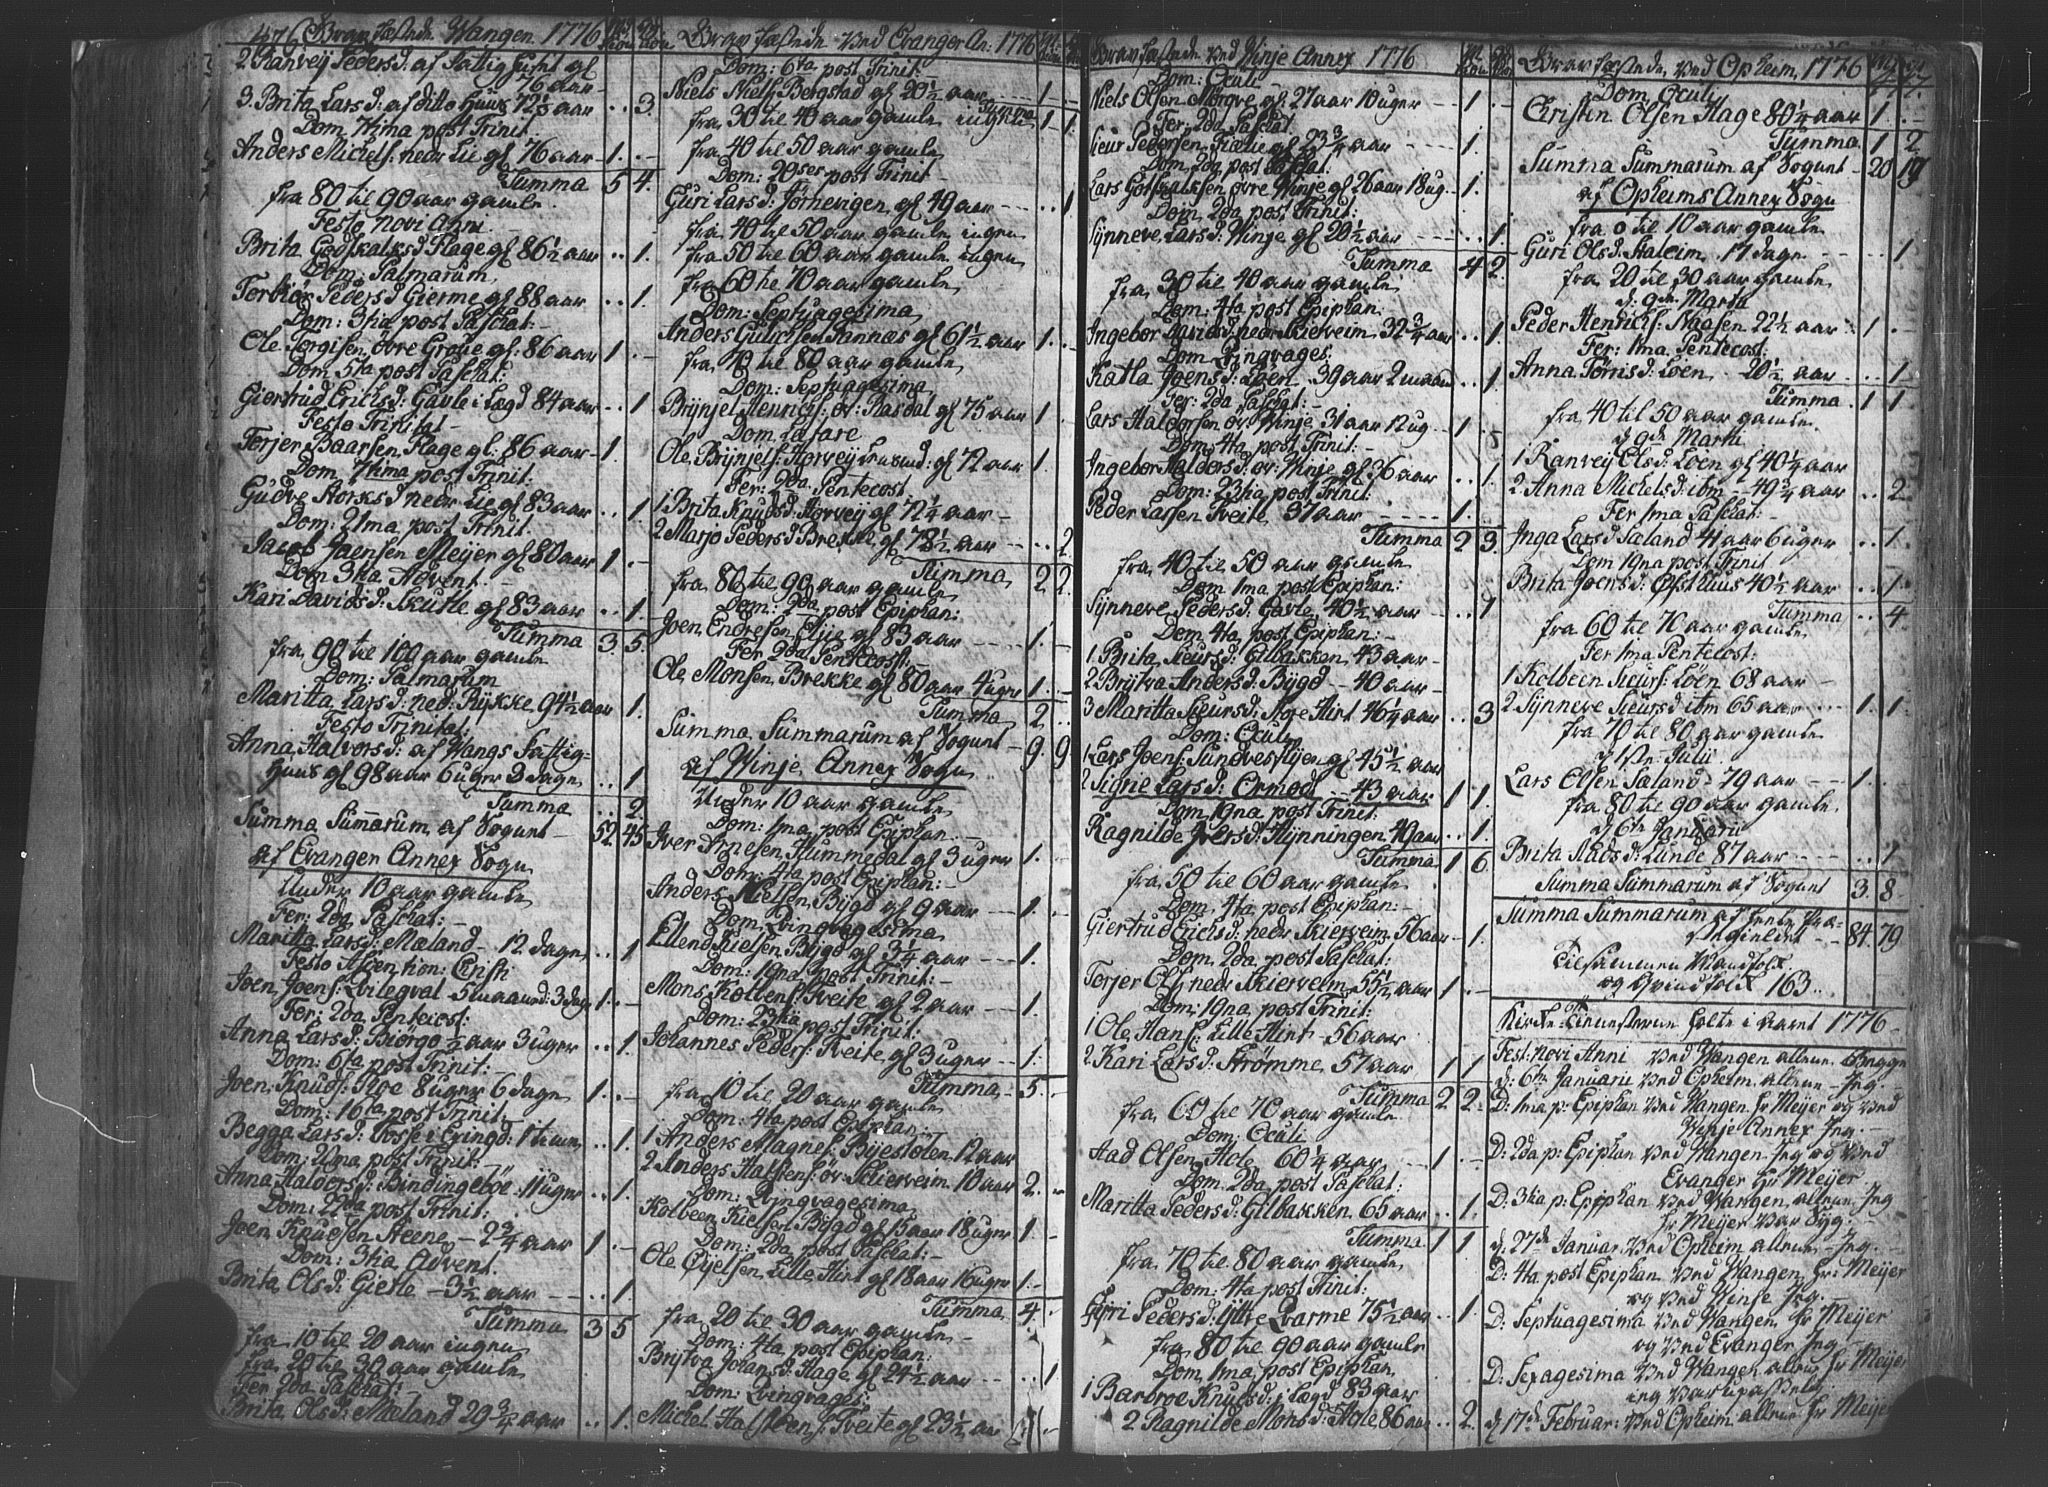 476 Gravfæstede Wangen 1776
2 Ranvey Peders d: af Fattig huset gl
76 aar
3. Brita Lars d: af ditto Huus 72½ aar .. 3.
Dom 7tima post Trinit:
Anders Michels: nedr Lie gl 76 aar 1. .-
Summa 5 4.
fra 80 til 90 aar gamle
Festo Novi Anni
Brita Godskalks d Flage gl 86½ aar .. 1.
Dom: Palmarum
Torbiør Peders d Gierme gl 88 aar .. 1.
Dom: 3tia post Paschat:
Ole Torgisen, øvre Grove gl: 86 aar 1. -
Dom 5ta post Paschat:
Giertrud Erichs d: Gavle i Lægd 84 aar .. 1
Festo Trinitat:
Torjer Baarsen Flage gl: 86 aar 1.
Dom 7tima post Trinit:
Gudve Storks d nedr Lie gl 83 aar .. 1.
Dom: 21ma post Trinit:
Jacob Joensen Meyer gl 80 aar 1. .-
Dom 3tia Advent.
Kari Davids d: Skutle gl 83 aar .. 1.
Summa 3. 5.
fra 90 til 100 aar gamle
Dom: Palmarum
Maritta Lars d: ned: Rykke 94½ aar 1.
Festo Trinitat:
Anna Halvors d: af Vangs Fattig-
Huus gl 98 aar 6 uger 3 dage .. 1
Summa .. 2.
Summa Summarum af Sognet 52. 45
af Evanger Annex Sogn
Under 10 aar gamle
Fer: 2da Paschat:
Maritta Lars d: Mæland 12 dage .. 1
Festo Ascention: Christi
Joen Joens: Qvilegval 5 maaned: 3 dag 1. .-
Fer: 2da Pentecost:
Anna Lars d: Biørgo ½ aar 3 uger .. 1.
Dom: 6ta post Trinit:
Joen Knuds: Roe 8 uger 6 dage 1. .-
Dom: 16ta post Trinit:
Begga Lars d: Fosse i Exingd: 1 time .. 1.
Dom: 20ma post Trinit:
Anna Halvors d: Bindingebøe 11 uger .. 1.
Dom: 22da post Trinit:
Joen Knudsen Steene 2¾ aar 1. .-
Dom: 3tia Advent.
Brita Ols d: Gierle 3½ aar .. 1.
Summa 3 5
fra 10 til 20 aar ingen
fra 20 til 30 aar gamle
Fer 2da Paschat:
Brita Ols d: Mæland 29¾ aar .. 1.
Gravfæstede Ved Evanger An: 1776
Dom: 6ta post Trinit:
Niels Niels: Bergstad gl 20½ aar 1.
Summa 1 1.
fra 30 til 40 aar gamle ingen
fra 40 til 50 aar gamle
Dom: 20ses post Trinit
Guri Lars d: Jørnevigen gl 49 aar .. 1
fra 40 til 50 aar gamle ingen
fra 50 til 60 aar gamle ingen
fra 60 til 70 aar gamle
Dom: Septuagesima
Anders Gulichsen Fannæs gl 61½ aar 1. .-
fra 70 til 80 aar gamle
Dom: Septuagesima
Brynjel Henrichs: øv: Rasdal gl 75 aar 1. .
Dom Lætare
Ole Brynjels: Horvey gl 72 aar 1.
Fer: 2da Pentecost
1 Brita Knuds d: Horvey gl 72¼ aar
2 Marjo Peders d Brekke gl 78½ aar .. 2
Summa 2 2.
fra 80 til 90 aar gamle
Dom: 2da post Epiphan:
Joen Endresen Elye gl 83 aar 1.
Fer 2da Pentecost:
Ole Monsen Brekke gl 80 aar 4 uger 1. -
Summa 2. ..
Summa Summarum af Sognet 9. 9
af Winje Annex Sogn
Under 10 aar gamle
Dom: 1ma post Epiphan:
Iver Arnesen Hummedal gl 3 uger 1.
Dom: 4ta post Epiphan:
Anders Nielsen Bygd gl 9 aar 1.
Dom Qvinqvagesima
Ellend Nielsen Bygd gl 3¼ aar 1.
Dom: 19na post Trinit:
Mons Kolbens: Tveite gl 2 aar 1
Dom: 23tia post Trinit:
Johannes Peders: Tveite gl 3 uger 1.
Summa 5.
fra 10 til 20 aar gamle
Dom: 4ta post Epiphan:
1 Anders Magnes: Byestølen 12 aar
2 Anders Halstens: øv: Skierveim 10 aar 2. -
Dom: Qvinqvagesima
Kolbeen Nielsen Bygd gl 15 aar 18 uger 1
Dom: 2da post Paschat:
Ole Øyelsen Lille Flint gl 18 aar 16 uger 1. -
Summa 4.
fra 20 til 30 aar gamle
Dom: 4ta post Epiphan:
Brytva Johans d: Flage gl 24½ aar .. 1
Dom: Qvinqvages:
Michel Halsteens: Tveite gl 23½ aar 1
Gravfæstede ved Winje Annex 1776
Dom: Oculi
Niels Olsen Mørgve gl: 27 aar 10 uger 1. -
Fer: 2da Paschat
Sieur Pedersen Qvæle gl: 23¾ aar 1.
Dom: 2da post Paschat:
Lars Gotskalksen øvre Winje gl 26 aar 18 ug. 1.
Dom: 2da post Trinit:
Synneve Lars d: Winje gl 20½ aar .. 1.
Summa 4 2.
fra 30 til 40 aar gamle
Dom: 4ta post Epiphan:
Ingebor Lars d: nedr Skierveim 32¾ aar .. 1.
Dom Qvinqvages:
Katla Joens d: Løen 39 aar 2 maan .. 1.
Fer: 2da Paschat:
Lars Haldorsen øv: Winje 31 aar 12 ug. 1 .
Dom 4ta post Trinit:
Ingebor Halders d: øv: Winje gl 36 aar .. 1
Dom: 23tia post Trinit:
Peder Larsen Tveite 37 aar 1.
Summa 2 3.
fra 40 til 50 aar gamle
Dom 1ma post Epiphan:
Synneve Peders d: Gavle 40½ aar .. 1
Dom 4ta post Epiphan:
1. Brita Sieurs d: Gilbakken 43 aar
2 Brytva Anders d: Bygd 40 aar
3 Maritta Sieurs d: Store Flint 46¼ aar .. 3
Dom: Oculi
1 Lars Joens: Sundvesflyen gl 45½ aar
2 Signe Lars d: Ormod 43 aar 1 1.
Dom 19na post Trinit:
Ragnilde Ivers d: Hynningen 49 aar .. 1.
Summa 1 6.
fra 50 til 60 aar gamle
Dom 4ta post Epiphan:
Giertrud Erichs d: nedr Skierveim 56 aar - 1.
Dom 2da post Paschat:
Torjer Ols: nedr Skierveim 55½ aar 1 .-
Dom: 19na post Trinit:
1 Ole Hans: Lille Flint 56 aar
2 Kari Lars d: Strømme 57 aar 1 1
Summa 2 2.
fra 60 til 70 aar gamle
Dom: Oculi
Aad Olsen Hole 60¼ aar 1 .-
Dom 2da post Paschat:
Maritta Peders d: Gilbakken 65 aar .. 1.
Summa 1 1
fra 70 til 80 aar gamle
Dom: 4ta post Trinit:
Gyri Peders d: Ytre Qvarme 75½ aar .. 1.
fra 80 til 90 aar gamle
Dom 1ma post Epiphan
1 Barbroe Knuds d: i Lægd 83 aar
2 Ragnilde Mons d: Hole 86 aar .. 2.
Gravfæstede ved Opheim 1776 477.
Dom Oculi
Christin Olsen Flage 80¼ aar 1 .-
Summa 1 2
Summa Summarum af Sognet 20 19
af Opheims Annex Sogn
fra 0 til 10 aar gamle
Guri Ols d: Staleim 17 dage .. 1
fra 20 til 30 aar gamle
d: 9de Martii
Peder Henrichs: Naasen 22½ aar 1 .-
Fer: 1ma Pentecost:
Anna Tørris d: Løen 20½ aar .. 1
Summa 1 1
fra 40 til 50 aar gamle
d 9de Martii
1 Ranvey Ols d: Løen gl 40¼ aar
2 Anna Michels d: ibm 49¾ aar .. 2.
Fer 1ma Paschat:
Inga Lars d Saland 41 aar 6 uger .. 1.
Dom 19na post Trinit
Brita Joers d: Opsthuus 40½ aar .. 1
Summa .. 4.
fra 60 til 70 aar gamle
Fer 1ma Pentecost:
1 Kolbeen Sieurs: Løen 68 aar
2 Synneve Sieurs d ibm 65 aar 1 1.
fra 70 til 80 aar gamle
Lars Olsen Saland 79 aar 1.
fra 80 til 90 aar gamle
d 6te Januarii
Brita Aads d: Lunde 87 aar .. 1
Summa Summarum af Sognet 3. 8
Summa Summarum af heele Præ-
stegieldet 84. 79
Tilsammen Mandfolk
og Qvindfolk 163.
Kirke Tienesterne holte i aaret 1776
Fest: Novi Anni ved Wangen allene Begge
d: 6te Januarii ved Opheim allene Jeg
D: 1ma p: Epiphan ved Wangen hr Meyer og ved
Venje Annex Jeg.
D: 2da p: Epiphan ved Wangen Jeg og ved
Evanger hr Meyer
D: 3tia p: Epiphan ved Wangen allene Jeg
hr Meyer var Syg.
d: 27de Januar: ved Opheim allene Jeg.
D: 4ta post Epiphan ved Wangen hr: Meyer
og ved Venje Jeg
D: Septuagesima ved Wangen hr Meyer
og ved Evanger Jeg
D: Sexagesima ved Wangen allene hr Meyer
jeg var upasselig
d 17de Februar: ved Opheim allene hr Meyer